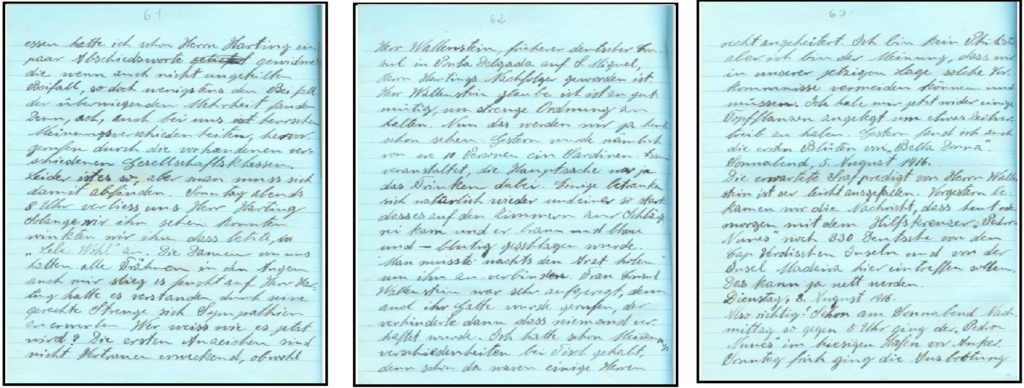 61
essen hatte ich schon Herrn Harting ein
paar Abschiedsworte gewidmet
die wenn auch nicht ungeteilten
Beifall, so doch wenigstens den Beifall
der überwiegenden Mehrheit fanden
denn, ach, auch bei uns ist herrschen
Meinungsverschiedenheiten, hervor-
gerufen durch die vorhandenen ver-
schiedenen Gesellschaftsklassen.
Leider ist es so, aber man muss sich
damit abfinden. Sonntag abends
8 Uhr verliess uns Herr Harting
Solange wir ihn sehen konnten
winkten wir ihm das letzte,
"Lebe Wohl" zu. Die Damen von uns
hatten alle Thränen in den Augen
auch mir stieg es feucht auf Herr Har-
ting hatte es verstanden durch seine
gerechte Strenge sich Sympathien
zu erwerben. Wer weiss wie es jetzt
wird? Die ersten Anzeichen sind
nicht Vertrauen erweckend, obwohl
62
Herr Wallenstein, früherer deutscher Con-
sul in Ponta Delgada auf S. Miguel,
Herrn Hartings Nachfolger geworden ist
Herr Wallenstein glaube ich ist zu gut
mütig, um strenge Ordnung zu
halten. Nun das werden wir ja
schon sehen. Gestern wurde nämlich
von 10 Personen ein Sardinen
veranstaltet, die Hauptsache war ja
das Trinken dabei. Einige betranken
sich natürlich wieder und einer so stark
dass es auf den Zimmern zur Schläge-
rei kam und er braun und blau
und - blutig geschlagen wurde.
Man musste nachts den Arzt holen
um ihn zu verbinden. Frau Consul
Wallenstein war sehr aufgeregt, denn
auch ihr Gatte wurde gerufen, der
verhinderte dann dass niemand ver-
haftet wurde. Ich hatte schon Meinungs-
verschiedenheiten bei Tisch gehabt,
denn schon da waren einige Herren
63
recht angeheitert. Ich bin kein Philister
aber ich bin der Meinung, dass wir
in unserer jetzigen Lage solche Vor-
kommnisse vermeiden können und
müssen. Ich habe mir jetzt wieder einige
Topfpflanzen angelegt um etwas Zeitver-
treib zu haben. Gestern fand ich auch
die ersten Blüten von "Bella Donna"
Sonnabend, 5. August 1916.
Die erwartete Strafpredigt von Herrn Wallen
stein ist leicht ausgefallen. Vorgestern be
kamen wir die Nachricht, dass heut oder
morgen, mit dem Hilfskreuzer "Pedro
Nunes" noch 330 Deutsche von den
Cap Verdischen Inseln und von der
Insel Madeira hier eintreffen sollen.
Das kann ja nett werden.
Dienstag, 8. August 1916.
Also richtig! Schon am Sonnabend Nach
mittag so gegen 5 Uhr ging der "Pedro
Nunes" im hiesigen Hafen vor Anker.
Sonntag früh ging die Ausbootung